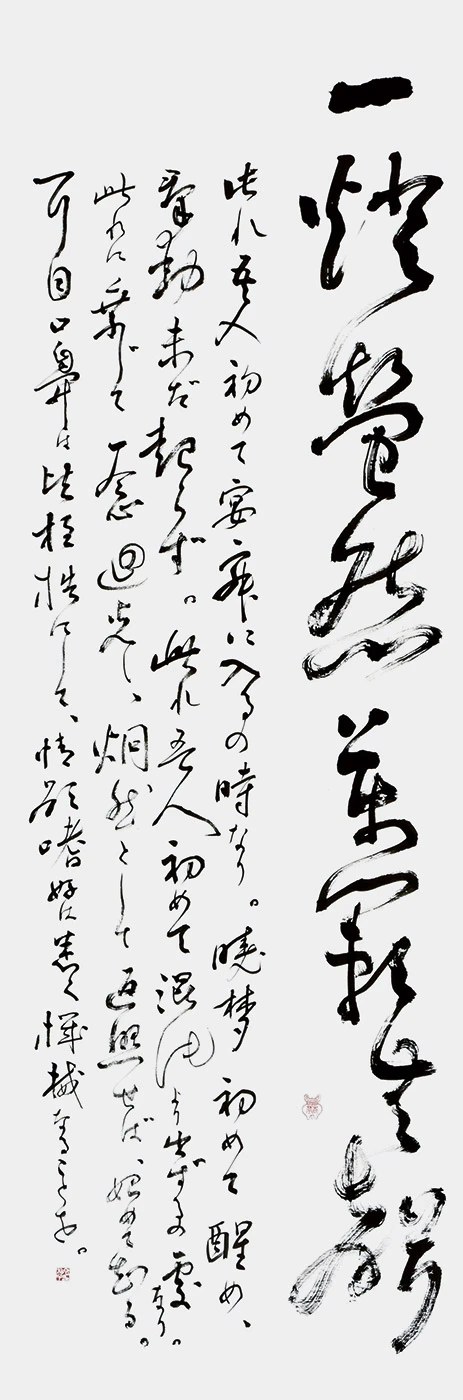 一燈螢然萬籟無聲
此れ吾人初めて宴寂に入るの時なり。暁梦初めて醒め、
羣動未だ起らず。此れ吾人初めて混沌より出ずるの處なり。
此れに乗じて一念迴光し、炯然として返照せば、始めて知る。
耳目口鼻は皆桎梏にして、情欲嗜好は悉く機械なることを。